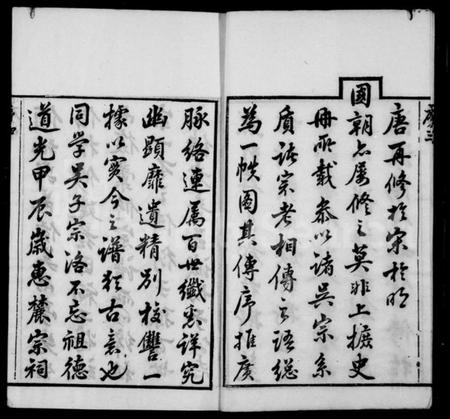 唐再修於宋於明
國朝亦屢修之莫非上摭史
冊所載恭以諸吳宗系
質諸宗老相傳之語總
為一帙圖其傳序推廣
脉絡連属百世纖悉詳究
幽顯靡遺精別校讐一
據以實今之譜猶古意也
同學吳子宗洛不忘祖德
道光甲辰歲惠麓宗祠